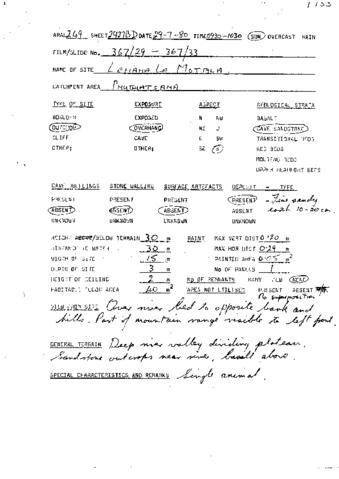 1 / 53
ARAL 269 SHEET 2927BD DATE 29-7-80 TIME 0930-1030 SUN OVERCAST RAIN
FILM/SLIDE No. 367/29 — 367/33
NAME OF SITE LEHAHA LA MOTALA
CATCHMENT AREA
TYPE OF SITE EXPOSURE ASPECT GEOLOGICAL STRATA
EXPOSED N NW BASALT
OVERHANG NE CAVE SANDSTONE
CLIFF CAVE E SW TRANSITIONAL BEDS
OTHER: OTHER: SE S RED BEDS
MOLTENO BEDS
CAVE BUILDINGS STONE WALLING SURFACE ARTEFACTS DEPOSIT - TYPE
PRESENT PRESENT PRESENT PRESENT - Fine sandy
ABSENT ABSENT ABSENT ABSENT 10-20 cm.
UNKNOWN UNKNOWN UNKNOWN UNKNOWN
HEIGHT ABOVE/BELOW TERRAIN 30 m PAINT MAX VERT DIST 0·20 m
30 m MAX HOR DIST 0·29 m
WIDTH OF SITE 15 m PAINTED AREA 0·05 m²
DEPTH OF SITE 3 m No OF PANELS 1
HEIGHT OF CEILING 2 m NO OF REMNANTS MANY FEW
40 m² PRESENT ABSENT
No superposition
VIEW FROM SITE Over river bed to opposite bank and
hills. Part of mountain range visible to left front.
GENERAL TERRAIN Deep river valley dividing plateau.
Sandstone outcrops near river, basalt above.
SPECIAL CHARACTERISTICS AND REMARKS Single animal.